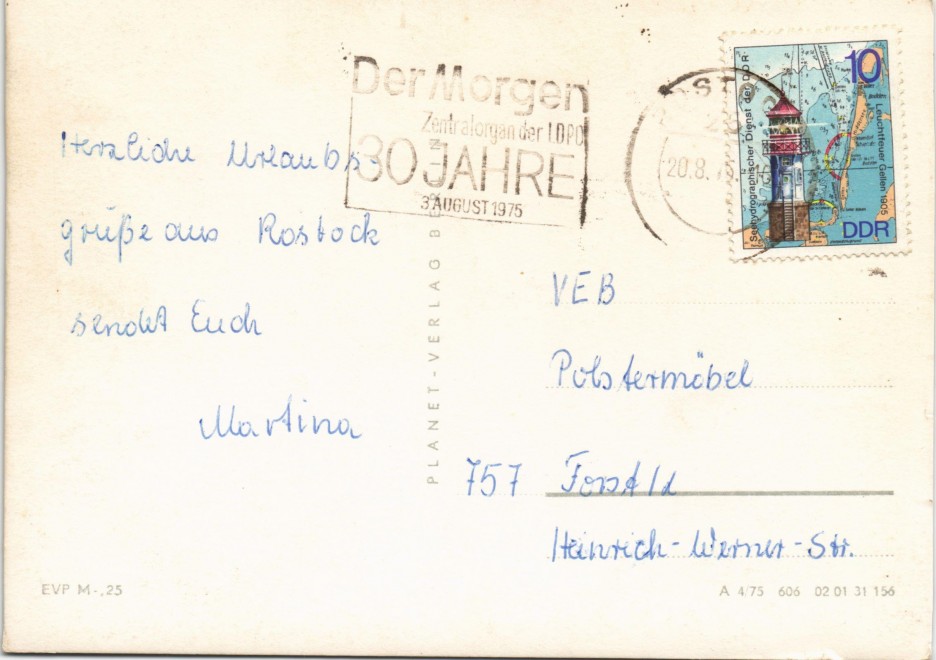 Der Morgen
Zentralorgan der LDPD
30 JAHRE
3. AUGUST 1975
20.8.
10
Seehydrographischer Dienst der DDR
Leuchtfeuer Gellen 1905
DDR
Herzliche Urlaubs-
grüße aus Rostock
sendet Euch
Martina
PLANET-VERLAG BERLIN
VEB
Polstermöbel
757 Forst/Ld
Heinrich-Werner-Str.
EVP M -,25
A 4/75 606 02 01 31 156